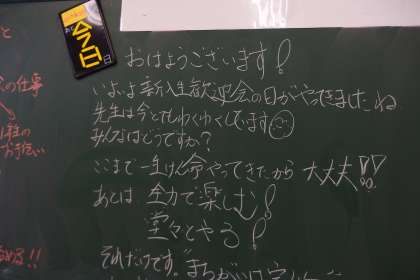 今日
日
おはようございます!
いよいよ新入生歓迎会の日がやってきましたね
先生は今とてもわくわくしています
みんなはどうですか?
ここまで一生けん命やってきたから 大丈夫!!
あとは、全力で楽しむ!
堂々とやる!
それだけです。
の仕事
お手伝い
める!!